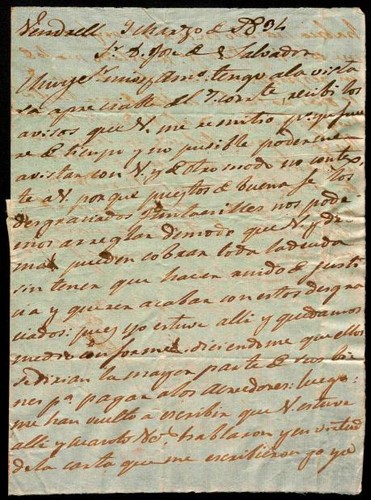 Vendrell 9 Marzo de 1834
Sr. D. José de Salvador
Muy Sr. mio y Amo. tengo a la vista
su apreciable del 7 corrte, recibi los
avisos que V. me remitio pa. que fue
de tiempo y no posible poderme
avistar con V. y de otro modo no contex
te a V. porque puestos de buena fe los
desgraciados nos pode
mos arreglar de modo que V. y de
mas pueden cobrar toda la deuda
sin tener que hacer ruido de justi
cia y quieren acabar con estos desgra
ciados: pues yo estuve alli y quedamos
medio conformes, diciendome que ellos
sedirian la mayor parte de sus bie
nes pa. pagar a los acreedores: luego
me han vuelto a escribir que V. estuvo
alli y &c. hablaron y en virtud
de la carta que me escribieron yo ya